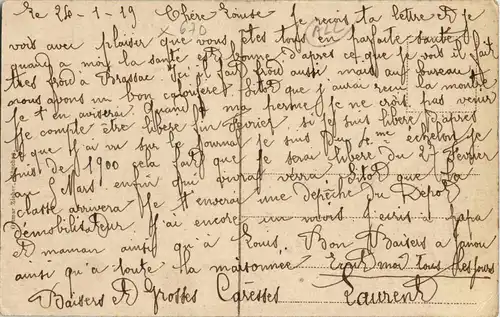 Le 26-1-19 Chère Louise Je reçois ta lettre et je
670 ALL
vois avec plaisir que vous êtes tous en parfaite santé
quand a moi la santé est bonne d'apres ce que je vois il fait
tres froid a Brassac ici il fait froid aussi mais au bureau
nous avons un bon calorifère sitot que j'aurai recu la montre
je t'en aviserai Quand a ma perme je ne crois pas venir
Je compte être libéré fin fevrier si je suis libéré d'après
ce que j'ai vu sur le journal je suis du 4me échelon je
suis de 1900 cela fait que je serai libéré du 2 Fevrier
au Mars enfin qui vivra verra sitot que la
classe arrivera Je t'enverai une depêche du Depot
démobilisateur J'ai encore un mois j'ecris a papa
et maman ainsi qu'à Louis, Bon Baisers a
ainsi qu'a toute la maisonnée Ecrit moi tous les jours
Baisers et Grosses Caresses Laurent